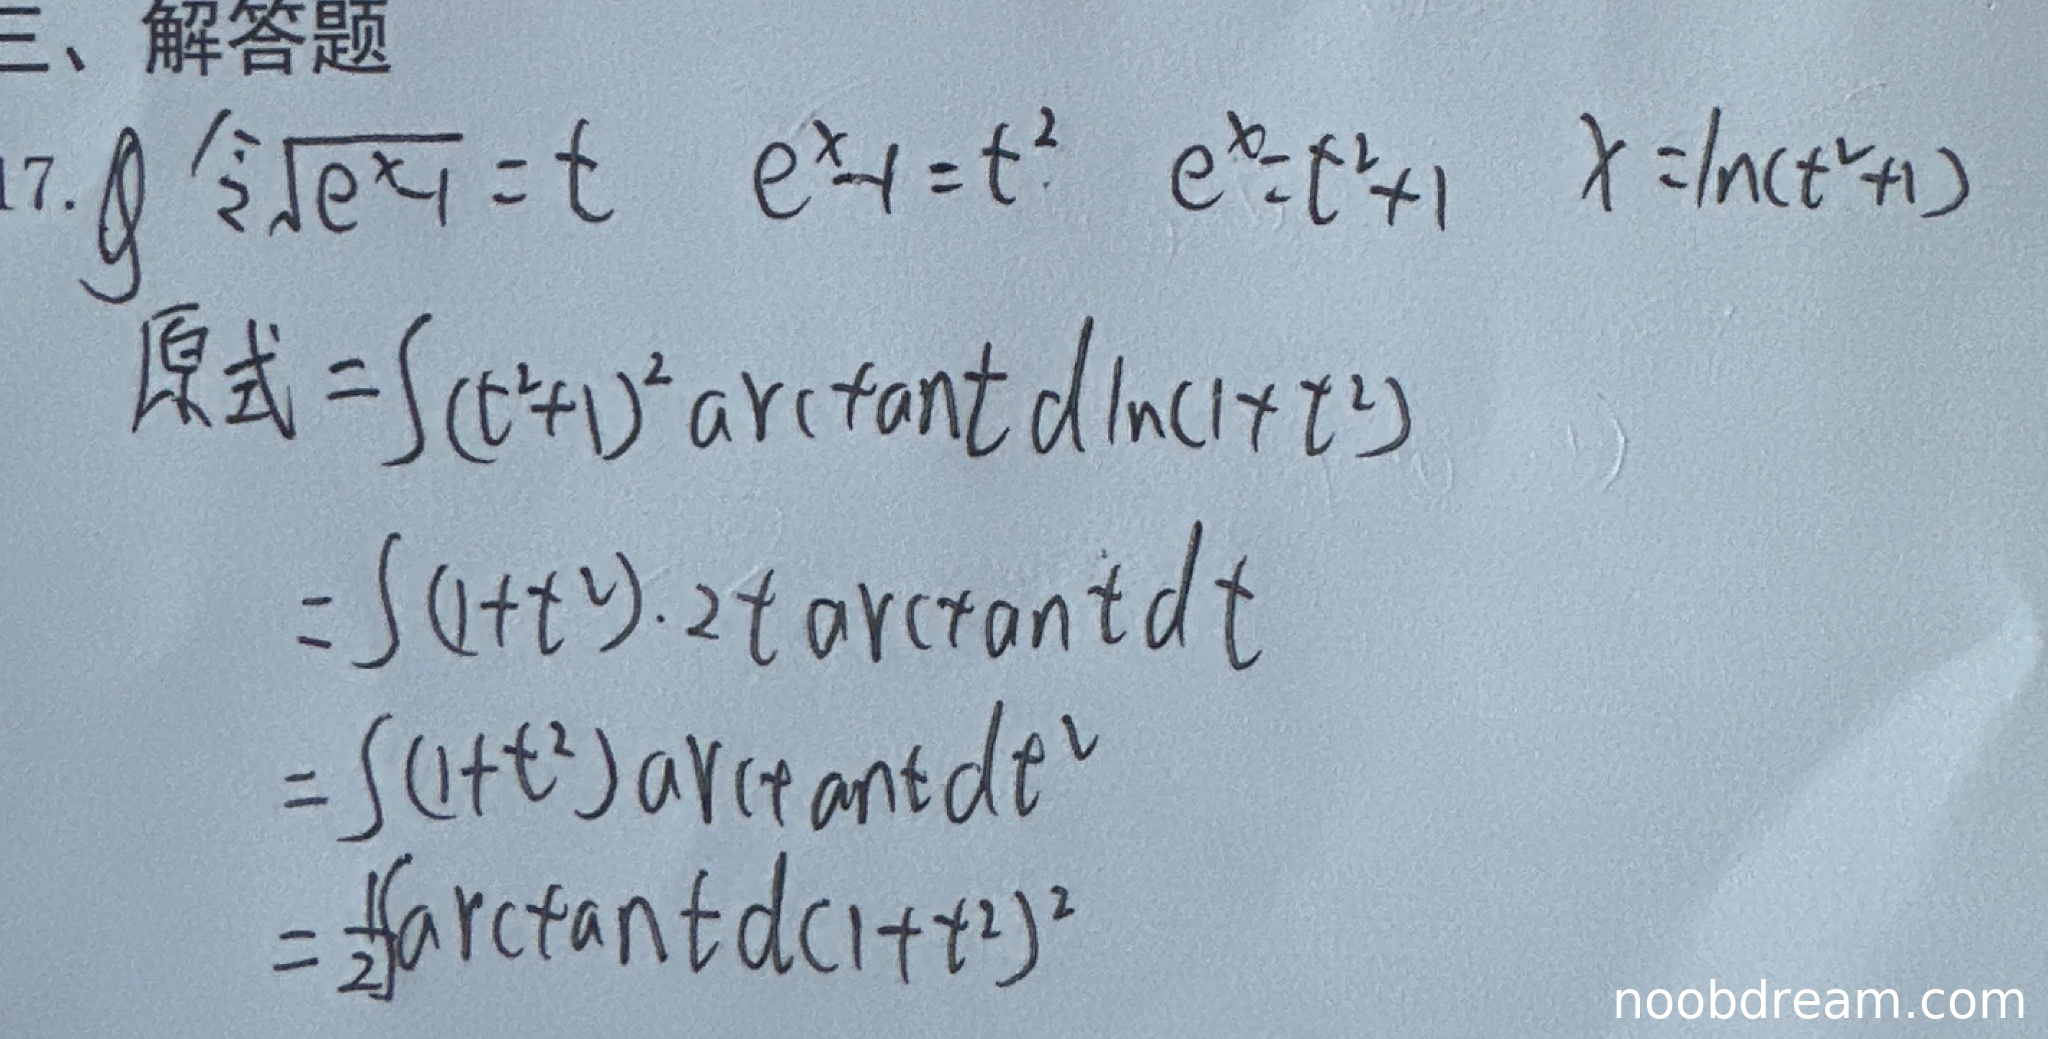 三、解答题
17. 令√(eˣ-1) = t eˣ-1 = t² eˣ = t²+1 x = ln(t²+1)
原式 = ∫(t²+1)² arctant d ln(1+t²)
= ∫(1+t²)·2t arctant dt
= ∫(1+t²) arctant dt²
= 1/2 ∫arctant d(1+t²)²
noobdream.com